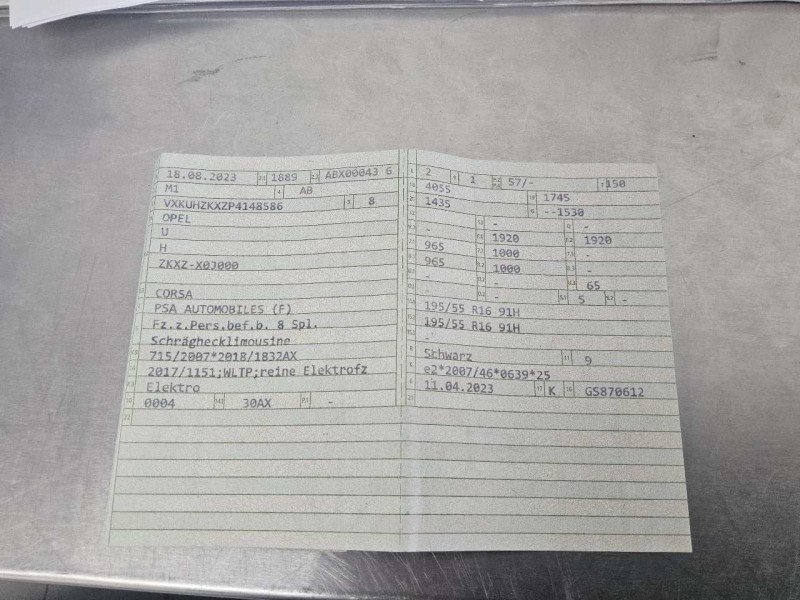 18.08.2023 2.1 1889 2.2 ABX00043 6
M1 4 AB
VXKUHZKXZP4148586 3 8
OPEL
U
H
ZKXZ-X0J000
CORSA
PSA AUTOMOBILES (F)
Fz.z.Pers.bef.b. 8 Spl.
Schräghecklimousine
715/2007*2018/1832AX
2017/1151;WLTP;reine Elektrofz
Elektro
0004 30AX -
2 1 57/- 150
4055 1745
1435 --1530
- - -
- 1920 1920
965 1000 -
965 1000 -
- - 65
- - 5 -
195/55 R16 91H
195/55 R16 91H
-
Schwarz 11 9
e2*2007/46*0639*25
11.04.2023 17 K 16 GS870612